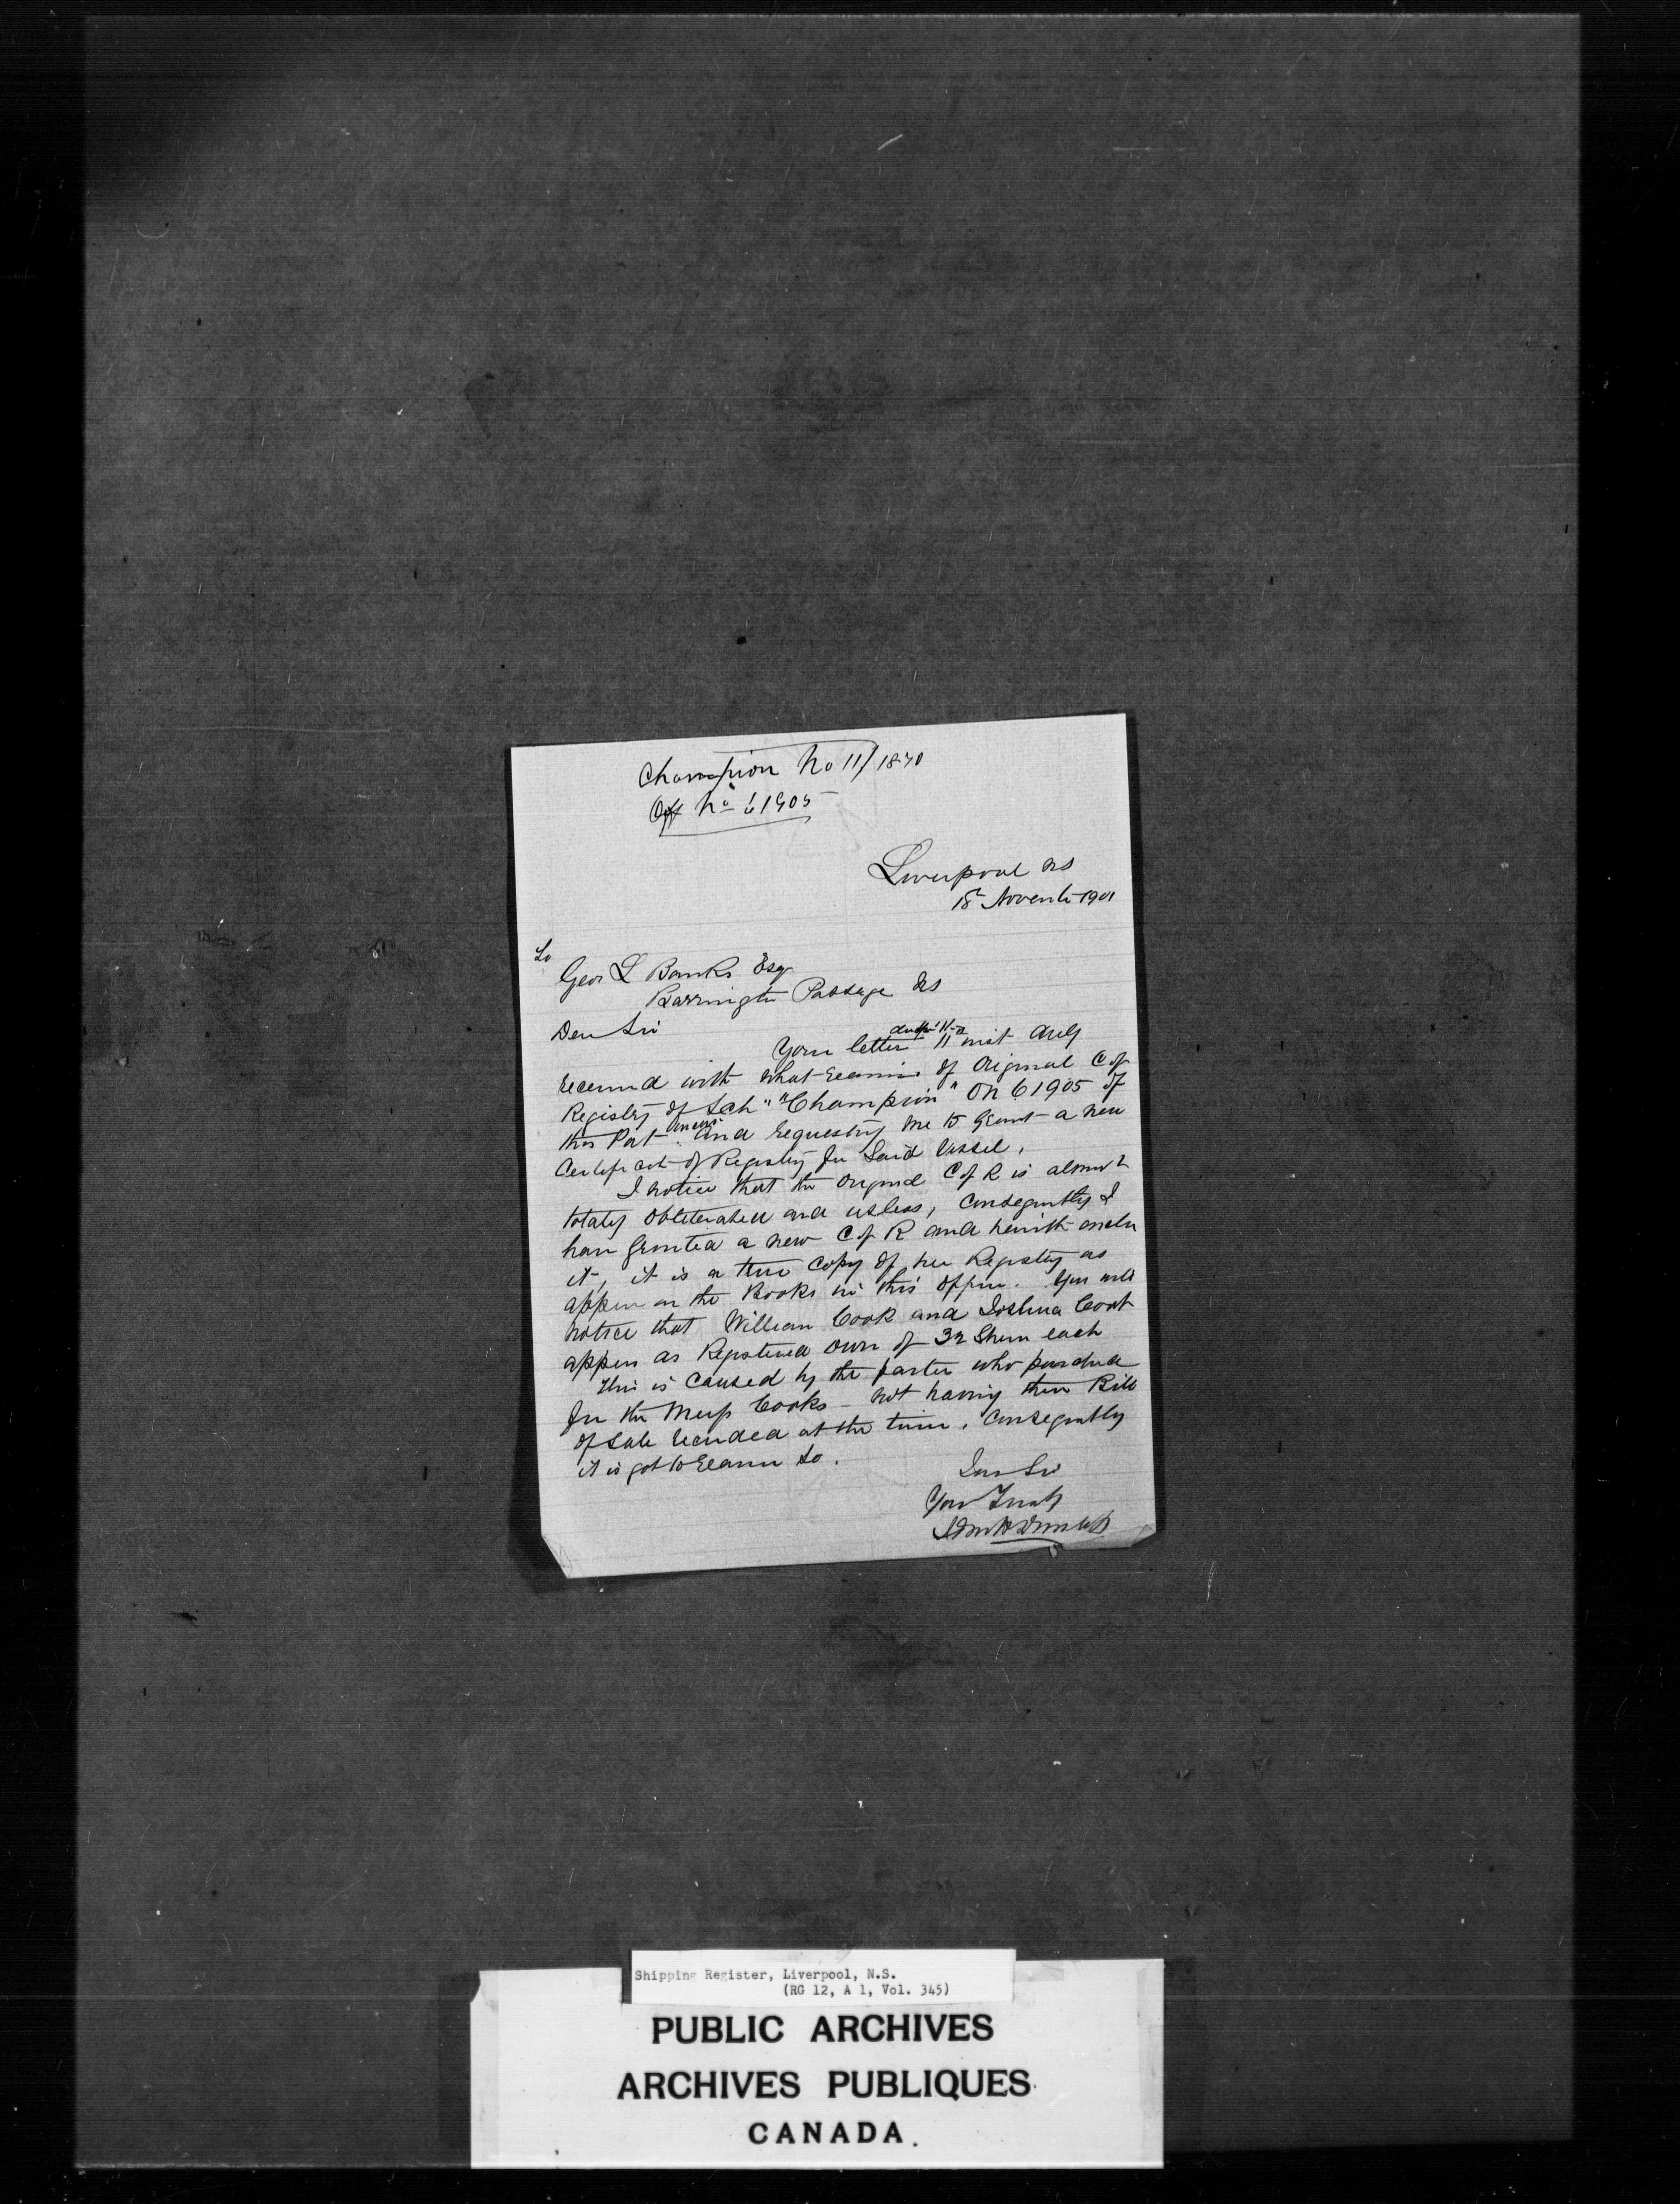 Champion No 11/1870
Off No 61905
Liverpool NS
18 Novembr 1901
To
Geo L Banks Esq
Barrington Passage NS
Dear Sir
Your letter 11 inst duly
received with what remains of Original C of
Registry of Sch "Champion" ON 61905 of
this Port and requesting me to Grant a new
Certificate of Registry for Said Vessel,
I notice that the Original C of R is almost
totaly obliterated and useless, Consequently I
have Granted a new C of R and herewith enclose
it, it is a true Copy of her Registry as
appear on the Books in this Office. You will
notice that William Cook and Joshua Cook
appear as Registered owners of 32 Shares each
This is caused by the parties who purchased
from the Messrs Cooks - not having their Bill
of Sale recorded at the time, Consequently
it is got to remain So.
Dear Sir
Your Truly
Shipping Register, Liverpool, N.S.
(RG 12, A 1, Vol. 345)
PUBLIC ARCHIVES
ARCHIVES PUBLIQUES
CANADA